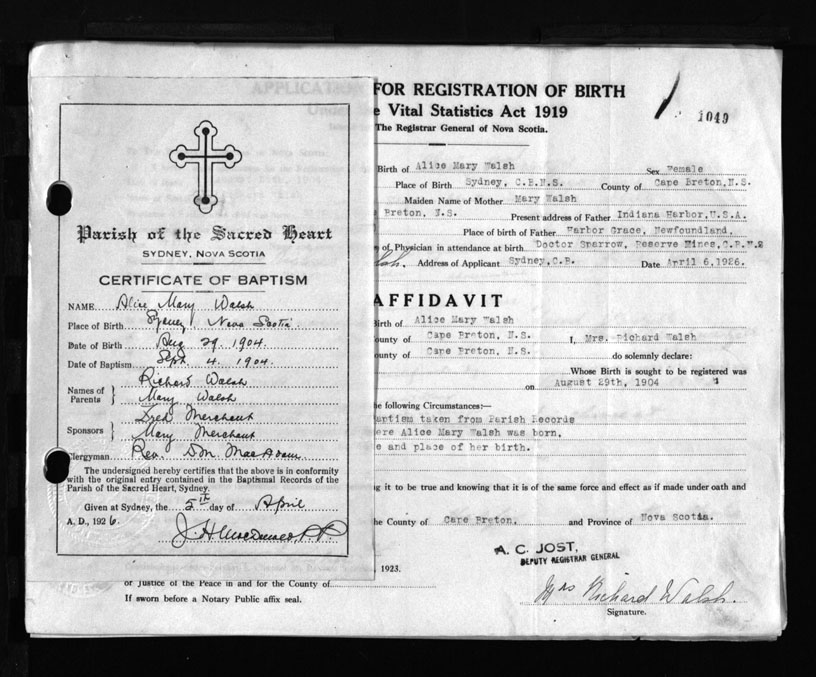 Parish of the Sacred Heart
SYDNEY, NOVA SCOTIA
CERTIFICATE OF BAPTISM
NAME Alice Mary Walsh
Place of Birth Sydney Nova Scotia
Date of Birth Aug 29 1904.
Date of Baptism Sept 4. 1904.
Names of Parents } Richard Walsh
Mary Walsh
Sponsors } Fred Merchant
Mary Merchant
Clergyman Rev. D.M. MacAdam
The undersigned hereby certifies that the above is in conformity
with the original entry contained in the Baptismal Records of the
Parish of the Sacred Heart, Sydney.
Given at Sydney, the 5th day of April
A. D., 1926.
APPLICATION FOR REGISTRATION OF BIRTH
Vital Statistics Act 1919
The Registrar General of Nova Scotia.
1049
Birth of Alice Mary Walsh Sex Female
Place of Birth Sydney, C.B.N.S. County of Cape Breton, N.S.
Maiden Name of Mother Mary Walsh
Breton, N.S. Present address of Father Indiana Harbor, U.S.A.
Place of birth of Father Harbor Grace, Newfoundland,
of Physician in attendance at birth Doctor Sparrow, Reserve Mines, C.B.
Address of Applicant Sydney, C.B. Date April 6, 1926.
AFFIDAVIT
Birth of Alice Mary Walsh
County of Cape Breton, N.S. I, Mrs. Richard Walsh
County of Cape Breton, N.S. do solemnly declare:
Whose Birth is sought to be registered was
on August 29th, 1904
the following Circumstances:—
Baptism taken from Parish Records
Alice Mary Walsh was born,
and place of her birth.
it to be true and knowing that it is of the same force and effect as if made under oath and
the County of Cape Breton, and Province of Nova Scotia.
A. C. JOST,
DEPUTY REGISTRAR GENERAL
1923.
or Justice of the Peace in and for the County of
If sworn before a Notary Public affix seal.
Mrs Richard Walsh.
Signature.